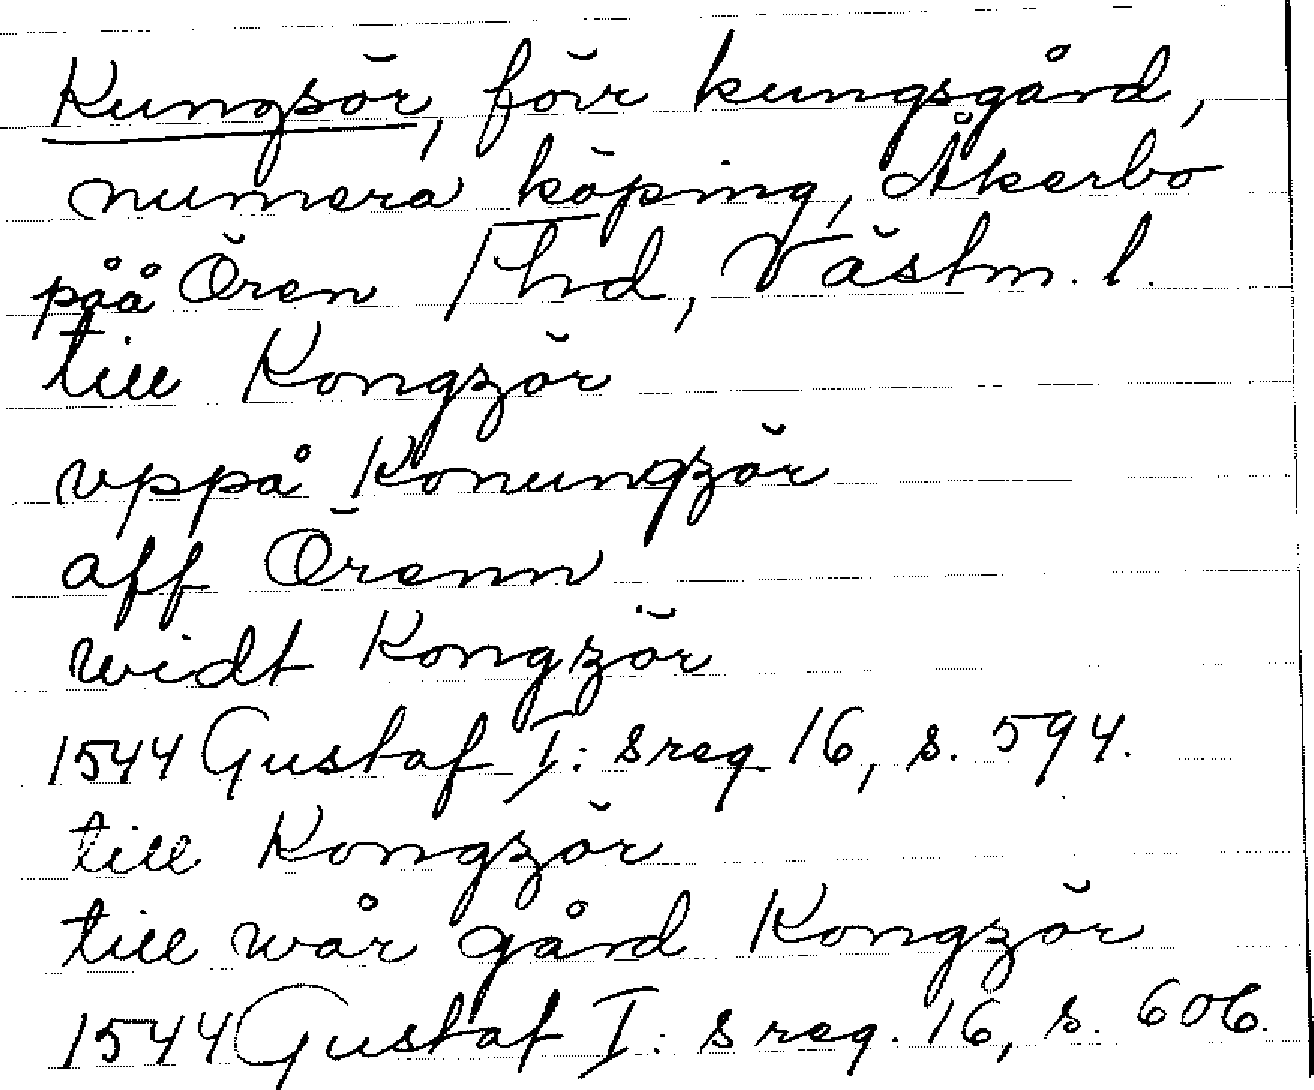 Kungsör, förr kungsgård,
numera köping, Åkerbo
påå Ören / hd, Västm. l.
till Kongzör
vppå Konungzör
aff Örenn
widt Kongzör
1544 Gustaf I: s reg 16, s. 594.
till Kongzör
till wår gård Kongzör
1544 Gustaf I: s reg. 16, s. 606.